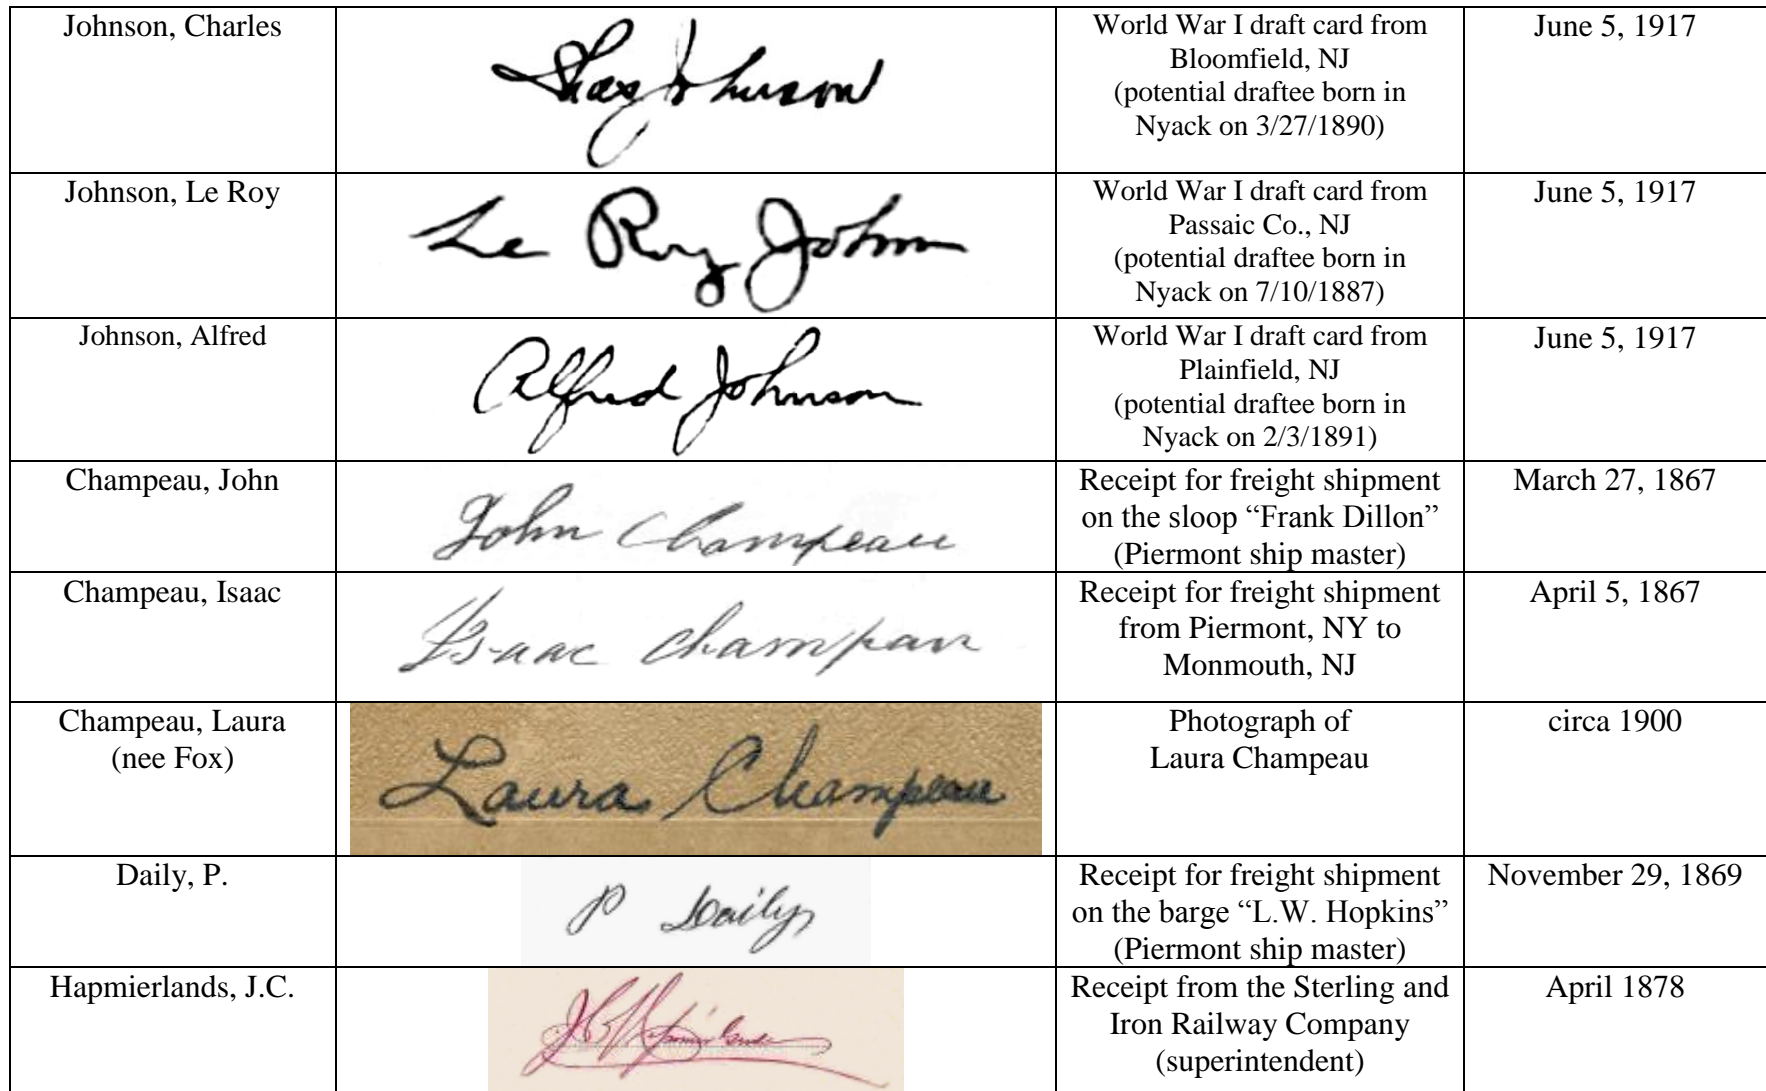 Johnson, Charles
Chas Johnson
World War I draft card from
Bloomfield, NJ
(potential draftee born in
Nyack on 3/27/1890)
June 5, 1917
Johnson, Le Roy
Le Roy John
World War I draft card from
Passaic Co., NJ
(potential draftee born in
Nyack on 7/10/1887)
June 5, 1917
Johnson, Alfred
Alfred Johnson
World War I draft card from
Plainfield, NJ
(potential draftee born in
Nyack on 2/3/1891)
June 5, 1917
Champeau, John
John Champeau
Receipt for freight shipment
on the sloop “Frank Dillon”
(Piermont ship master)
March 27, 1867
Champeau, Isaac
Isaac Champau
Receipt for freight shipment
from Piermont, NY to
Monmouth, NJ
April 5, 1867
Champeau, Laura
(nee Fox)
Laura Champeau
Photograph of
Laura Champeau
circa 1900
Daily, P.
P Daily
Receipt for freight shipment
on the barge “L.W. Hopkins”
(Piermont ship master)
November 29, 1869
Hapmierlands, J.C.
Receipt from the Sterling and
Iron Railway Company
(superintendent)
April 1878